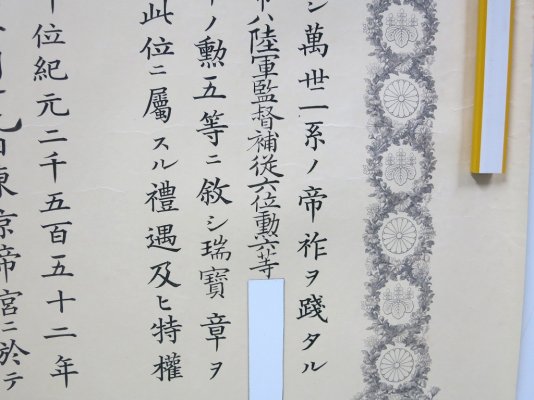 シ萬世一系ノ帝祚ヲ踐タル
ハ陸軍監督補従六位勲六等
ノ勲五等ニ敘シ瑞寶章ヲ
此位ニ屬スル禮遇及ヒ特權
位紀元二千五百五十二年
東京帝宮ニ於テ